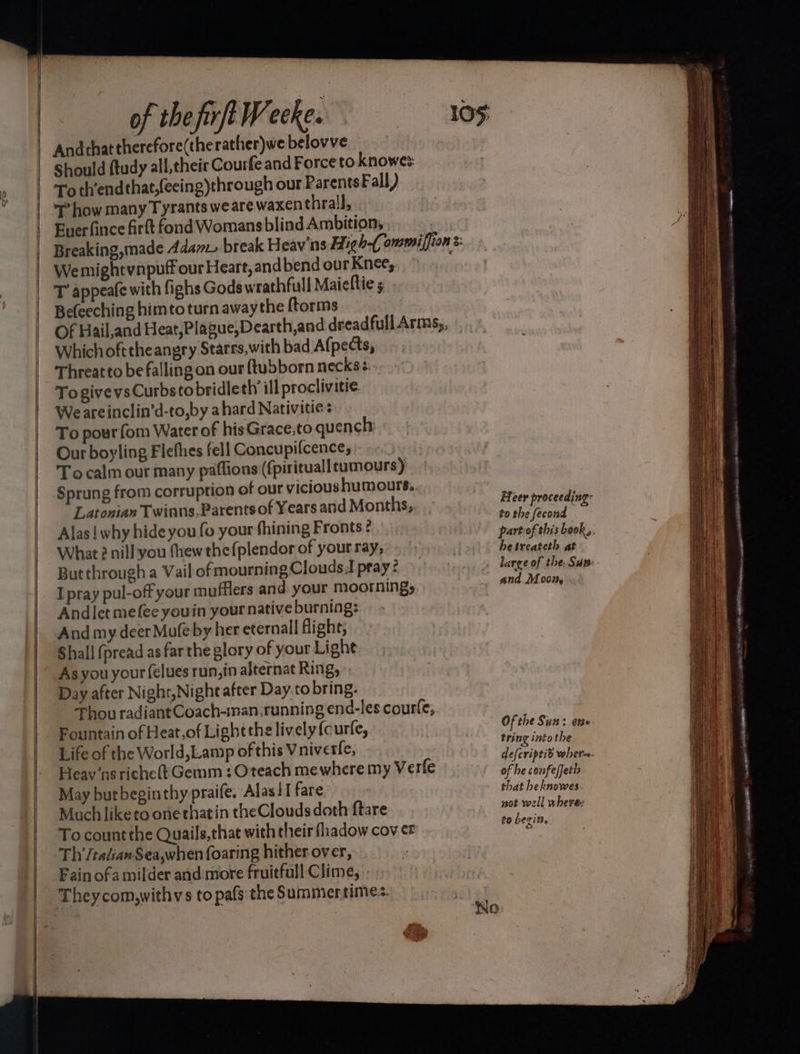 of the firſt Weeke. 105
And that therefore (the rather) we belov ve
Should ſtudy all, their Courſe and Force to knowe:
To th'end that, ſeeing) through our Parents Fall)
T'how many Tyrants we are waxen thrall,
Euer ſince firſt fond Womans blind Ambition,
Breaking, made Adam break Heav'ns High-Commiſſion:
We might vnpuff our Heart, and bend our Knee,
T'appeaſe with ſighs Gods wrathfull Maieſtie;
Beſeeching him to turn away the ſtorms
Of Hail, and Heat, Plague, Dearth, and dreadfull Arms,
Which oft the angry Starrs, with bad Aſpects,
Threat to be falling on our ſtubborn necks:
To give vs Curbs to bridle th' ill proclivitie
We are inclin'd-to, by a hard Nativitie:
To pour ſom Water of his Grace, to quench
Our boyling Fleſhes fell Concupiſcence,
To calm our many paſſions (ſpirituall tumours)
Sprung from corruption of our vicious humours.
Latonian Twinns, Parents of Years and Months,
Alas! why hide you ſo your ſhining Fronts?
What? nill you ſhew the ſplendor of your ray,
But through a Vail of mourning Clouds, I pray?
I pray pul-off your mufflers and your moorning,
And let me ſee you in your native burning:
And my deer Muſe by her eternall flight;
Shall ſpread as far the glory of your Light
As you your ſelues run, in alternat Ring,
Day after Night, Night after Day to bring.
Thou radiant Coach-man, running end-les courſe,
Fountain of Heat, of Light the lively ſcurſe,
Life of the World, Lamp of this Vniverſe,
Heav'ns richeſt Gemm: O teach me where my Verſe
May but begin thy praiſe. Alas! I fare
Much like to one that in the Clouds doth ſtare
To count the Quails, that with their ſhadow cover
Th' Italian Sea, when ſoaring hither over,
Fain of a milder and more fruitfull Clime,
They com, with vs to paſs the Summer time:
No
Heer proceeding
to the ſecond
part of this book,
he treateth at
large of the Sun
and Moon,
Of the Sun: ene
tring into the
deſcriptiõ wher-
of he confeſſeth
that he knowes
not well where
to begin,